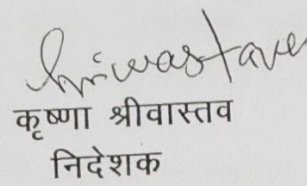 Srivastava
कृष्णा श्रीवास्तव
निदेशक